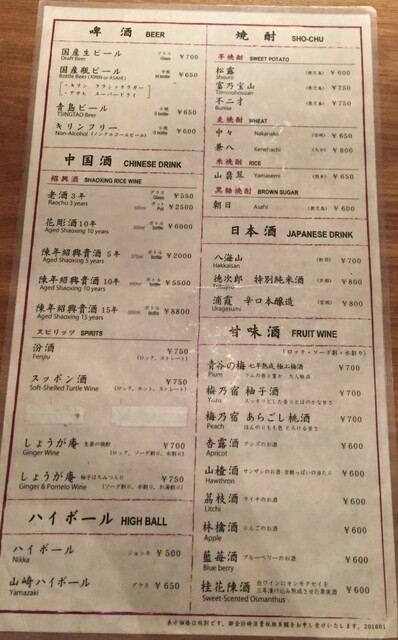 啤酒 BEER
国産生ビール グラス Glass ¥700
Draft Beer
国産瓶ビール M bottle ¥650
Bottle Beer (KIRIN or ASAHI)
・キリン クラシックラガー
・アサヒ スーパードライ
青島ビール 小瓶 S bottle ¥650
TSINGTAO Beer
キリンフリー 小瓶 S bottle ¥600
Non-Alcohol (ノンアルコールビール)
中国酒 CHINESE DRINK
紹興酒 SHAOXING RICE WINE
老酒3年 グラス Glass ¥550
Raochu 3 years Pot ¥2500
花彫酒10年 ボトル bottle ¥6000
Aged Shaoxing 10 years
陳年紹興貴酒 5年 ボトル bottle ¥2000
Aged Shaoxing 5 years
陳年紹興貴酒 10年 ボトル bottle ¥5500
Aged Shaoxing 10 years
陳年紹興貴酒 15年 ボトル bottle ¥8800
Aged Shaoxing 15 years
スピリッツ SPIRITS
汾酒 ¥750
Fenjiu (ロック、ストレート)
スッポン酒 ¥750
Soft-Shelled Turtle Wine (ロック、ホット、ストレート)
しょうが庵 生姜の焼酎 ¥700
Ginger Wine (ロック、ソーダ割り、水割り)
しょうが庵 柚子はちみつ入り ¥750
Ginger & Pomelo Wine (ソーダ割り、水割り、お湯割り)
ハイボール HIGH BALL
ハイボール ジョッキ ¥500
Nikka
山崎ハイボール グラス ¥650
Yamazaki
焼酎 SHO-CHU
芋焼酎 SWEET POTATO
松露 ¥600
Shouro
富乃宝山 (鹿児島) ¥750
Tominohouzan
不二才 (鹿児島) ¥750
Bunisai
麦焼酎 WHEAT
中々 Nakanaka (宮崎) ¥650
兼八 Kenehachi (大分) ¥800
米焼酎 RICE
山翡翠 Yamasemi ¥650
黒糖焼酎 BROWN SUGAR
朝日 Asahi (鹿児島) ¥600
日本酒 JAPANESE DRINK
八海山 (新潟) ¥700
Hakkaisan
徳次郎 特別純米酒 (京都) ¥800
Tokujiro
浦霞 辛口本醸造 (宮城) ¥800
Uragasumi
甘味酒 FRUIT WINE
(ロック・ソーダ割・水割り)
青谷の梅 七年熟成 極上梅酒 ¥700
Plum
梅乃宿 柚子酒 ¥700
Yuzu
梅乃宿 あらごし桃酒 ¥700
Peach
杏露酒 アンズのお酒 ¥600
Apricot
山楂酒 サンザシのお酒 ¥600
Hawthron
茘枝酒 ライチのお酒 ¥600
Litchi
林檎酒 りんごのお酒 ¥600
Apple
藍苺酒 ブルーベリーのお酒 ¥600
Blue berry
桂花陳酒 白ワインにキンモクセイを三年漬け込み熟成させた果実酒 ¥600
Sweet-Scented Osmanthus